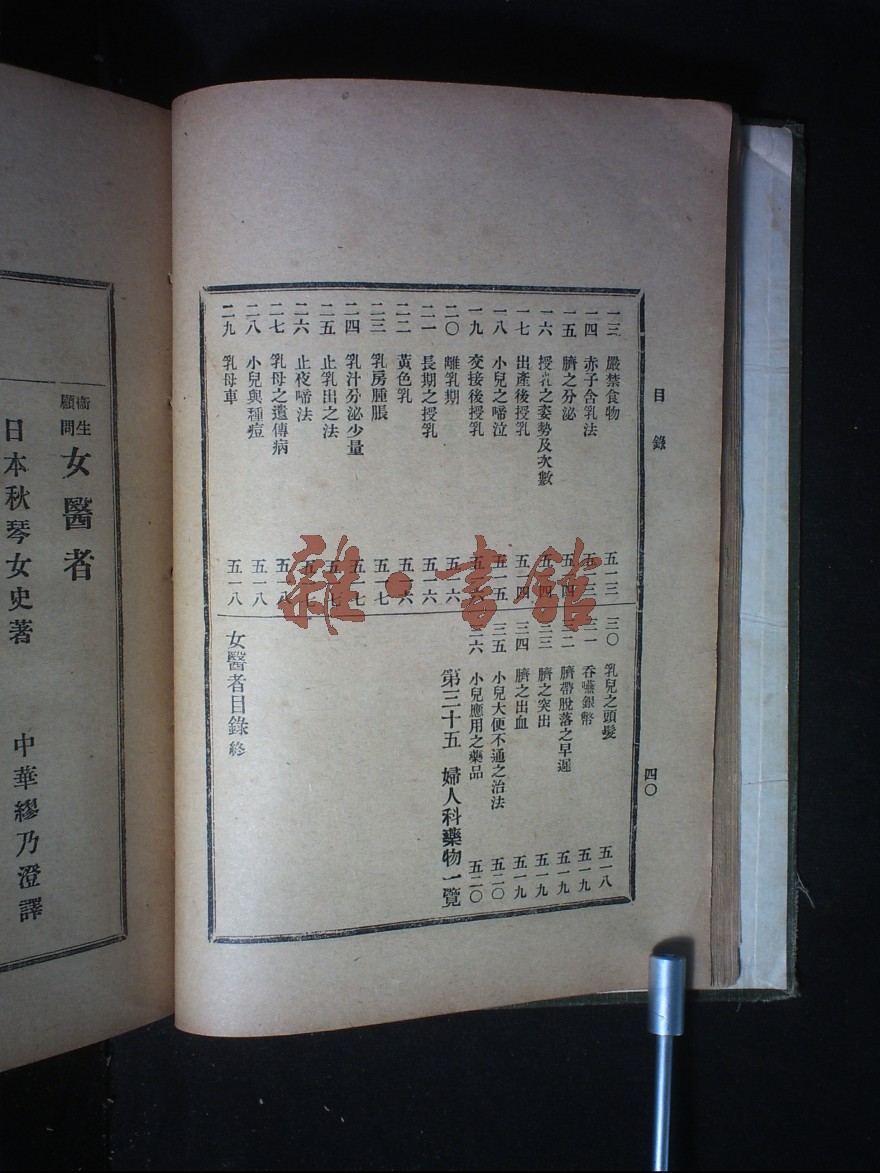 目錄
四〇
一三 嚴禁食物 五一三
一四 赤子含乳法 五一三
一五 臍之分泌 五一四
一六 授乳之姿勢及次數 五一四
一七 出產後授乳 五一四
一八 小兒之啼泣 五一五
一九 交接後授乳
二〇 離乳期 五一六
二一 長期之授乳 五一六
二二 黃色乳 五一六
二三 乳房腫脹 五一七
二四 乳汁分泌少量 五一七
二五 止乳出之法 五一七
二六 止夜啼法 五一七
二七 乳母之遺傳病 五一八
二八 小兒與種痘 五一八
二九 乳母車 五一八
三〇 乳兒之頭髮 五一八
三一 吞嚥銀幣 五一九
三二 臍帶脫落之早遲 五一九
三三 臍之突出 五一九
三四 臍之出血 五一九
三五 小兒大便不通之治法 五二〇
三六 小兒應用之藥品 五二〇
第三十五 婦人科藥物一覽
女醫者目錄終
衞生顧問 女醫者
日本秋琴女史著 中華繆乃澄譯
雜·書館